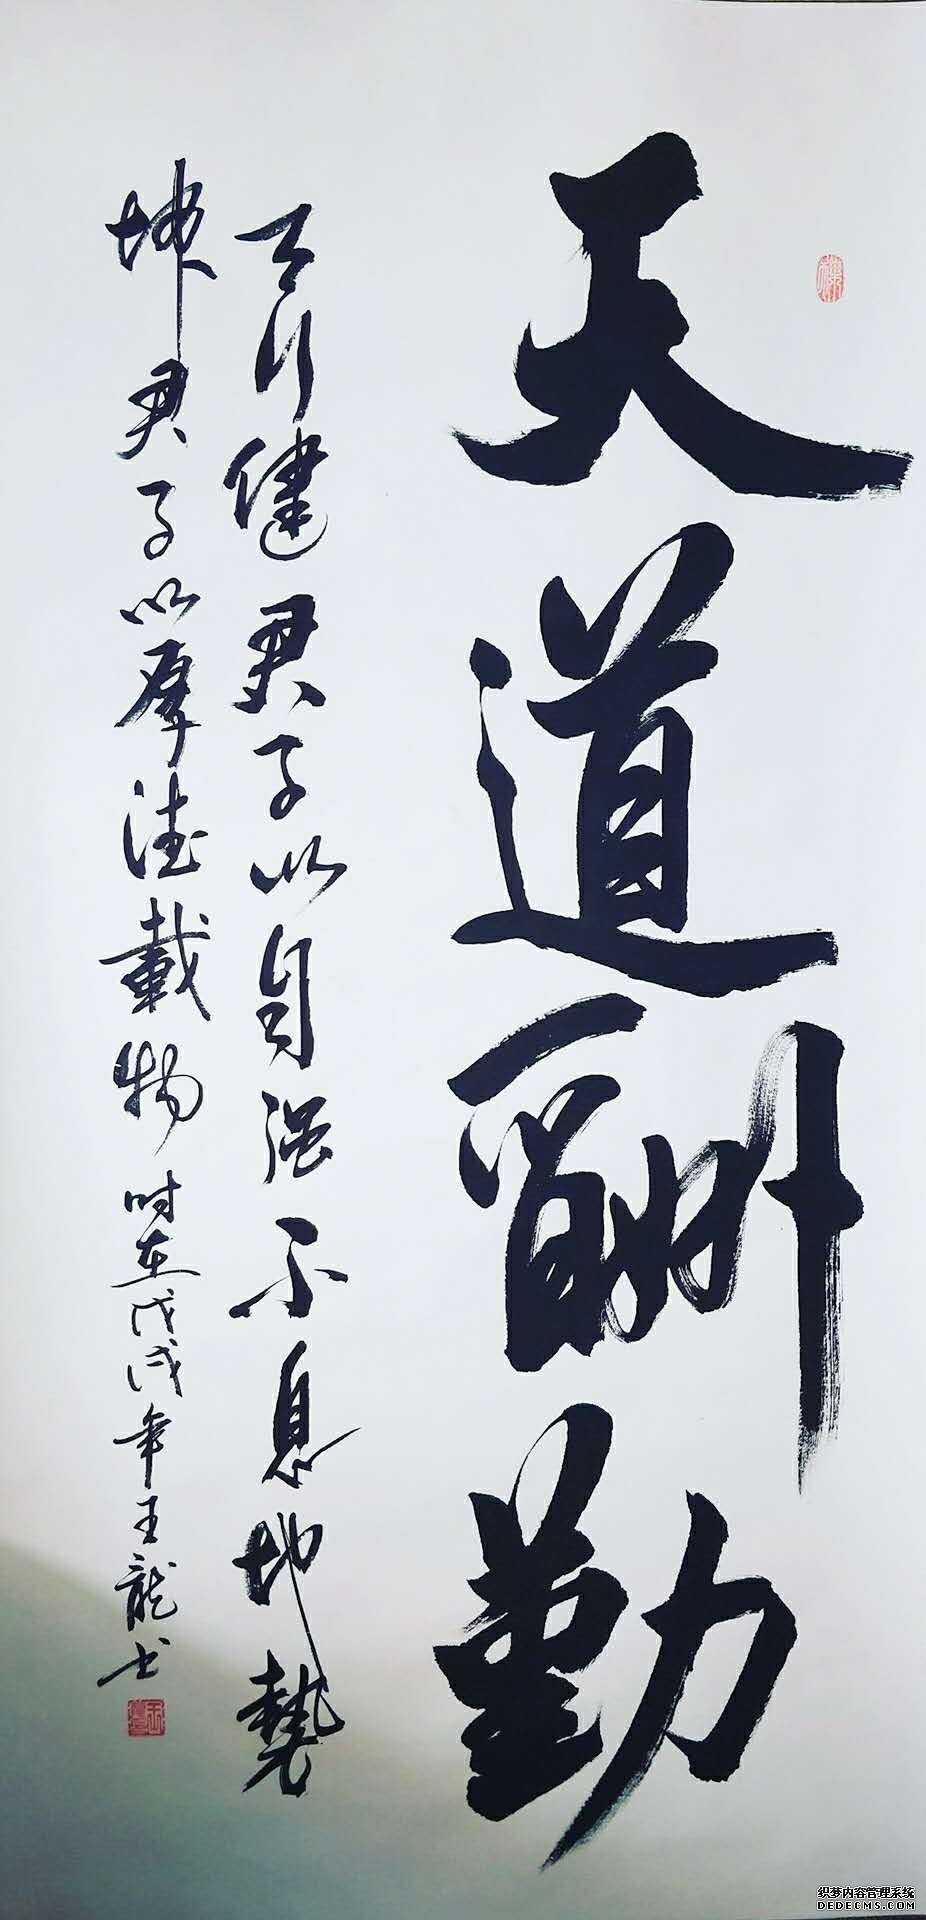 天道酬勤
天行健君子以自强不息地勢
坤君子以厚德載物时在戊戌年王龍书
织梦内容管理系统
DEDECMS.COM